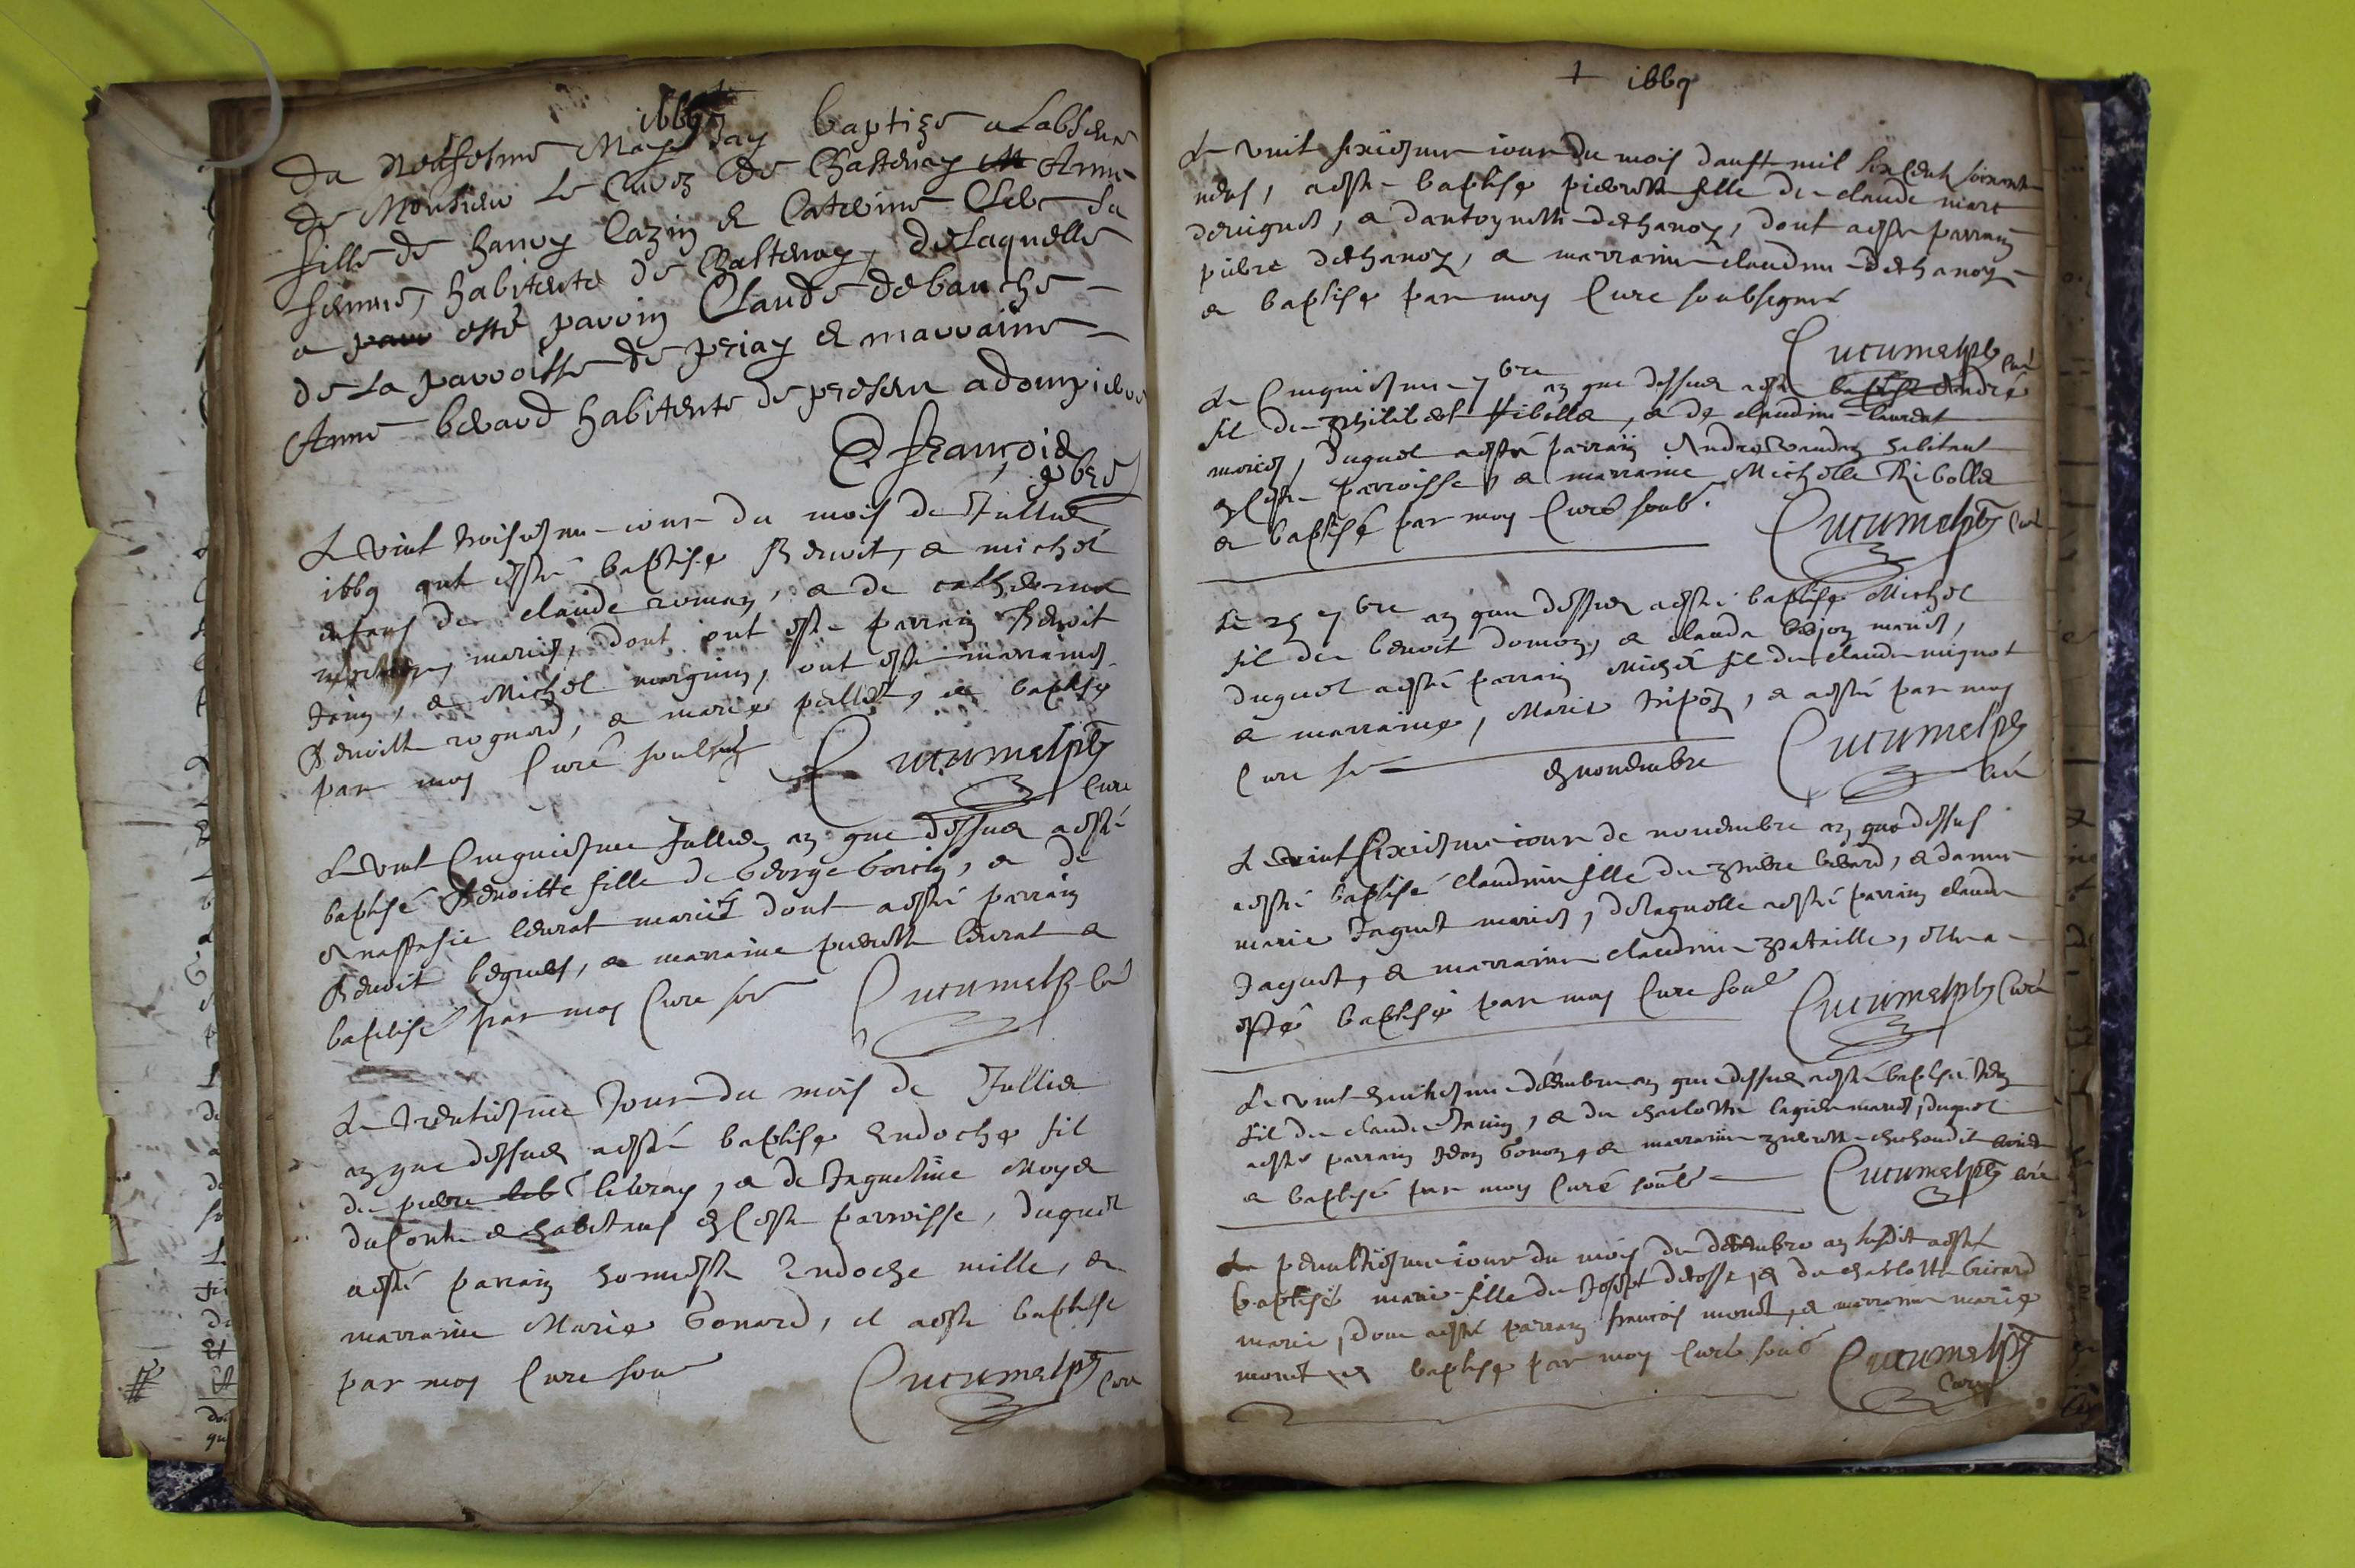 1669
Du neufesme May Jay baptize a Labsence
de Monsieur Le Curez de Chastenay Anne
fille de hanry Cazin et Caterine sa
femme, habitente de Chastenay, de Laquelle
a esté parrin Claude debauche
de La parroisse de priay et marraine
Anne berard habitente de present a dompierre
françois
Le vint troisiesme jour du mois de Jullied
1669 ont esté baptise Benoit, et michel
enfans de claude roman, et de catherine
maries, dont ont este parrain Benoit
Janin, et Michel morguin, ont este marraines
Benoitte rognard, et marie pullet, et baptise
par moy Curé soubsig
Cucumelpbr
Curé
Le vint Cinquiesme Jullied an que dessus a esté
baptisé Benoitte fille de George Gorcin, et de
Anastasie leurat mariés dont a esté parrain
Benoit begues, et marraine pierrette leurat et
baptisé par moy Cure sous
Cucumelpb Cu
Le trentiesme Jour du mois de Jullied
an que dessus a esté baptise Endoche fil
de pierre leb levray, et de Jaqueline Moyed
du Conte et habitens en Ceste parroisse, duquel
a esté parrain honneste Endoche mille, et
marraine Marie Gonard, il a este baptise
par moy Cure sou
Cucumelpb Cure
+ 1669
Le vint sixiesme jour du mois daust mil six cent soixante
neuf, a este baptise pierrette fille de claude marc
deruignes, et dantoynette dethanoz, dont a este parrain
pierre dethanoz, et marraine claudine dethanoz
et baptise par moy Cure soubsigné
Cucumelpb Curé
Le Cinquiesme 7bre an que dessus a esté baptisé Andre
fil de philibert Ribollet, et de claudine laurent
maries, duquel a esté parrain Andre vaudan habitent
en Ceste parroisse, et marraine Michelle Ribollet
et baptisé par moy Curé soub.
Cucumelpb Curé
Le 25 7bre an que dessus a esté baptise Michel
fil de benoit domon, et claude béjon maries,
duquel a esté parrain Michel fil de claude mignot
et marraine, Marie tripoz, et a esté par moy
Cure so
Cucumelpb
Curé
en novembre
Le vint sixiesme jour de novembre an que dessus
a esté baptisé claudine fille de pierre bérard, et danne
marie Jaquet maries, de laquelle a esté parrain claude
Jaquet, et marraine claudine pataille, elle a
esté baptise par moy Cure soub
Cucumelpb Curé
Le vint huictiesme décembre an que dessus a esté baptisé Jean
fil de claude Janin, et de charlotte lagier maries, duquel
a esté parrain Jean Gonon, et marraine pierrette
et baptisé par moy Curé soubs
Cucumelpb Curé
Le penultiesme jour du mois de décembre an susdit a esté
baptisé marie fille de Josept decosse, et de charlotte Gricard
marie, dont a esté parrain françois monet, et marraine marie
monet et baptise par moy Curé soub
Cucumelpb
Curé